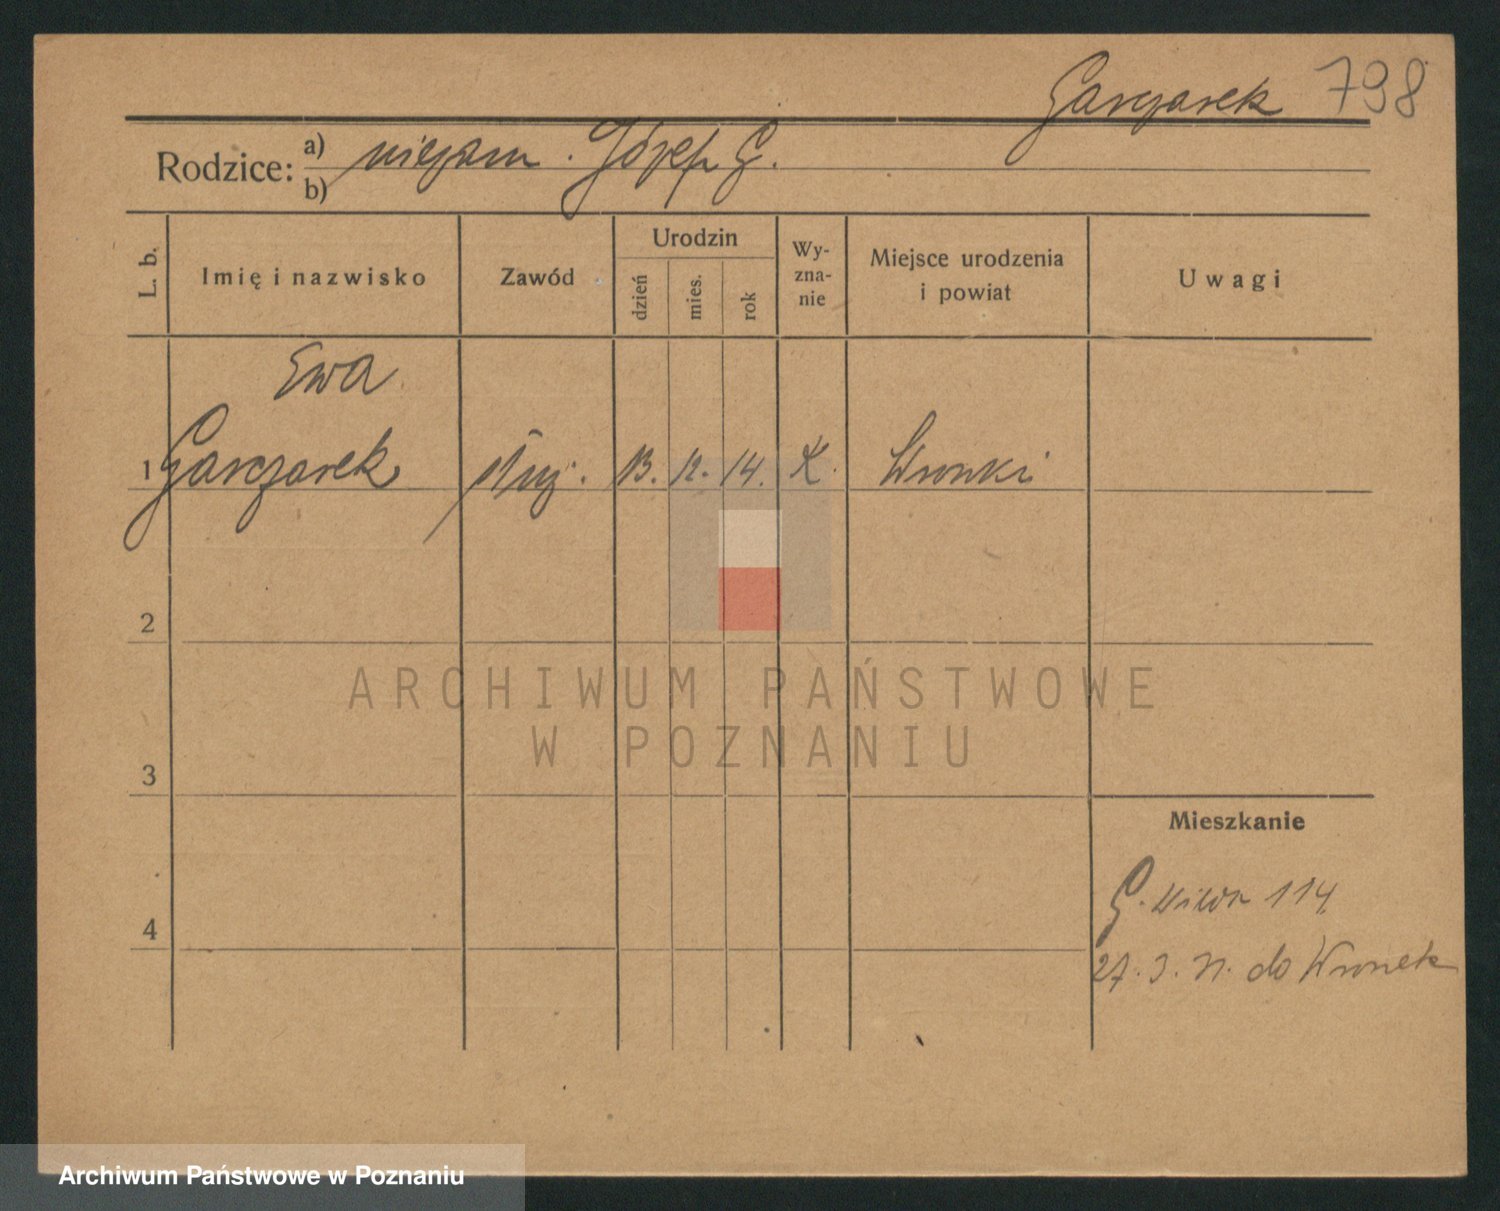 Garczarek 798
Rodzice: a) niezam. Józef G.
b)
L. b.
Imię i nazwisko
Zawód
Urodzin
dzień
mies.
rok
Wy-
zna-
nie
Miejsce urodzenia
i powiat
Uwagi
Ewa
1 Garczarek służ. 13. 12. 14. K. Wronki
2
3
4
Mieszkanie
G. Wilda 114
27. 3. do Wronek
ARCHIWUM PAŃSTWOWE
W POZNANIU
Archiwum Państwowe w Poznaniu